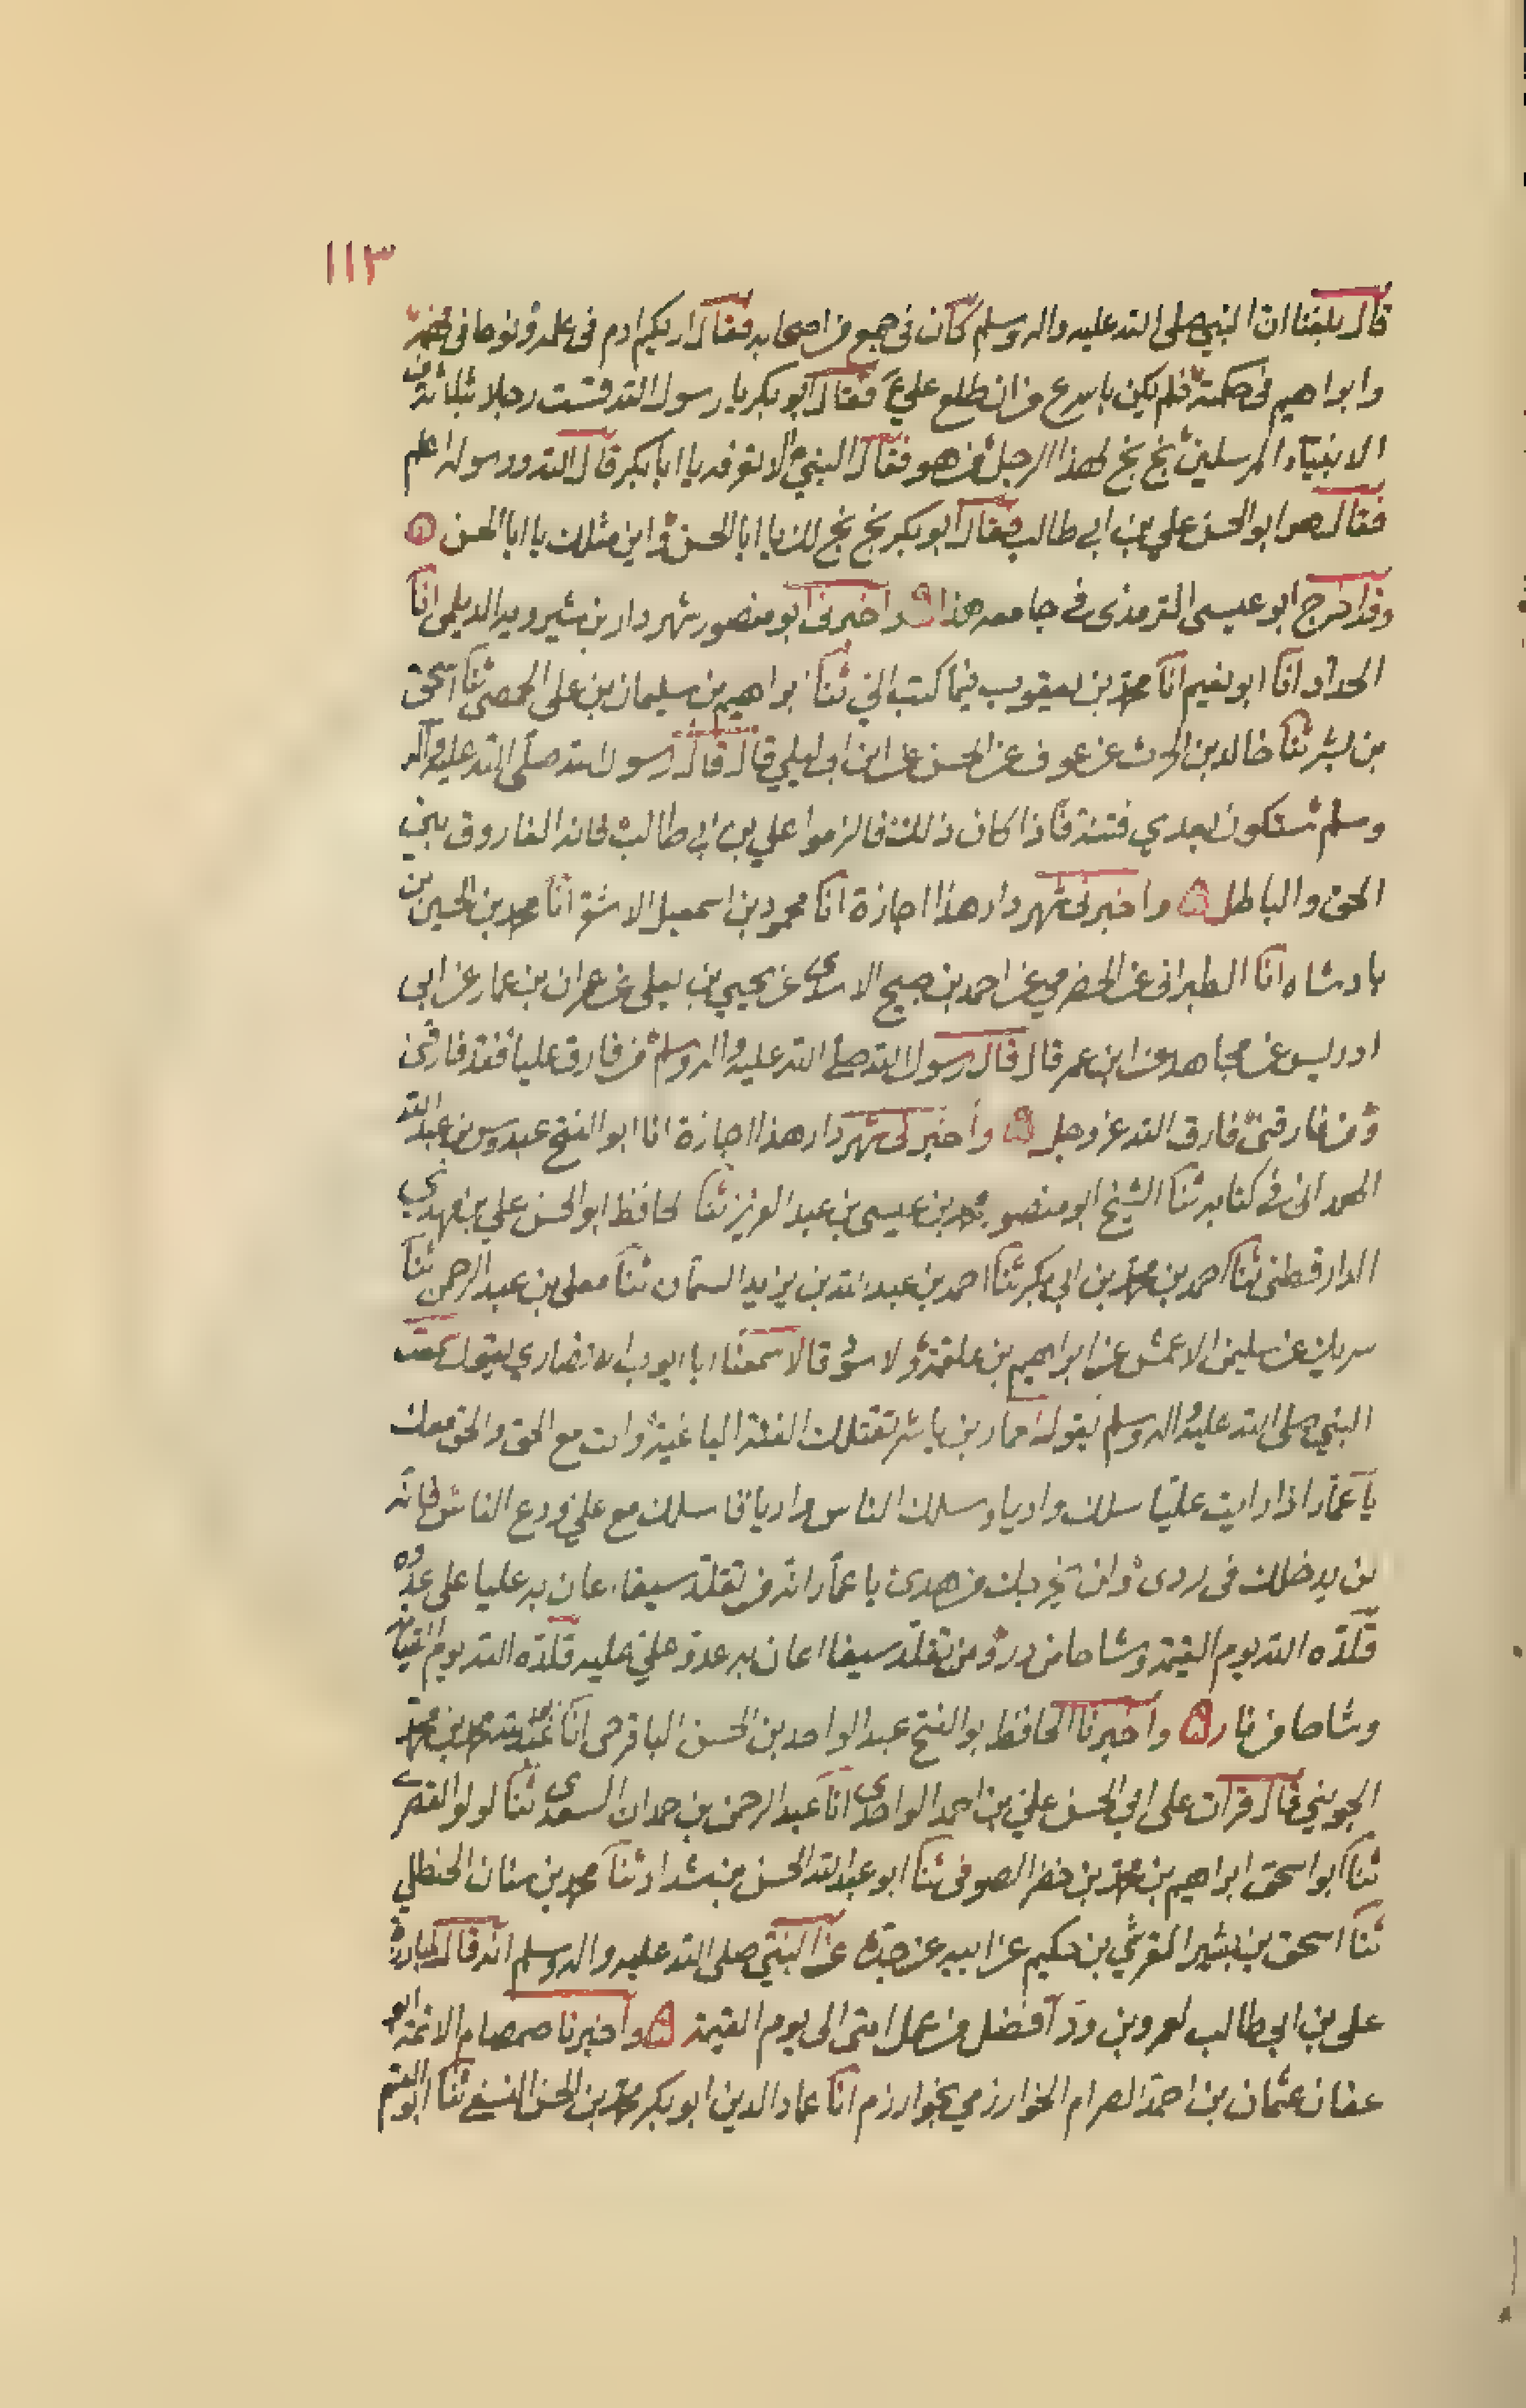 ١١٣
قال بلغنا ان النبي صلى الله عليه واله وسلم كان في جمع من اصحابه فقال اريكم ادم في علمه ونوحا في فهمه
وابراهيم في حكمته فلم يكن باسرع من ان طلع علي ع فقال ابو بكر يا رسول الله قست رجلا بثلثة من
الانبياء المرسلين بخ بخ لهذا الرجل من هو فقال النبي الا تعرفه يا ابا بكر قال الله ورسوله اعلم
فقال هو ابو الحسن علي بن ابي طالب فقال ابو بكر بخ بخ لك يا ابا الحسن واين مثلك يا ابا الحسن
وقد اخرج ابو عيسى الترمذي في جامعه هذا واخبرني ابو منصور شهردار بن شيرويه الديلمي انا
الحداد انا ابو نعيم انا محمد بن يعقوب فيما كتب الي ثنا ابراهيم بن سليمان بن علي الحمصي ثنا اسحق
بن بشر ثنا خالد بن الحرث عن عوف عن الحسن عن ابن ابي ليلى قال قال رسول الله صلى الله عليه واله
وسلم ستكون بعدي فتنة فاذا كان ذلك فالزموا علي بن ابي طالب فانه الفاروق بين
الحق والباطل واخبرني شهردار هذا اجازة انا محمود بن اسمعيل الاشقر انا محمد بن الحسين بن
بادشاه انا الطبراني عن الحضرمي عن احمد بن صبيح الاسدي عن يحيي بن يعلى عن عمران بن عمار عن ابي
ادريس عن مجاهد عن ابن عمر قال قال رسول الله صلى الله عليه واله وسلم من فارق عليا فقد فارقني
ومن فارقني فارق الله عز وجل واخبرني شهردار هذا اجازة انا ابو الفتح عبدوس بن عبد الله
الهمداني في كتابه ثنا الشيخ ابو منصور محمد بن عيسى بن عبد العزيز ثنا لحافظ ابو الحسن علي بن مهدي
الدارقطني ثنا احمد بن محمد بن ابي بكر ثنا احمد بن عبد الله بن يزيد السمان ثنا معلى بن عبد الرحمن ثنا
شريك عن سليمن الاعمش عن ابراهيم بن علقمة والاسود قالا سمعنا ابا ايوب الانصاري يقول سمعت
النبي صلى الله عليه واله وسلم يقول لعمار بن ياسر تقتلك الفئة الباغية وانت مع الحق والحق معك
يا عمار اذا رايت عليا سلك واديا وسلك الناس واديا فاسلك مع علي ودع الناس فانه
لن يدخلك في ردى ولن يخرجك من هدى يا عمار انه من تقلد سيفا اعان به عليا على عدوه
قلده الله يوم القيمة وشاحا من در ومن تقلد سيفا اعان به عدو علي عليه قلده الله يوم القيامة
وشاحا من نار واخبرنا الحافظ ابو الفتح عبد الواحد بن الحسن الباقرحي انا محمد بن محمد
الجويني قال قرات على ابي الحسن علي بن احمد الواحدي انا عبد الرحمن بن حمدان السعدي ثنا لولو القصري
ثنا ابو اسحق ابراهيم بن محمد بن خضر الصوفي ثنا ابو عبد الله الحسن بن شداد ثنا محمد بن سنان الحنظلي
ثنا اسحق بن بشير القرشي بن حكيم عن ابيه عن جده عن النبي صلى الله عليه واله وسلم انه قال لمبارزة
علي بن ابي طالب لعمرو بن ود افضل من عمل امتي الى يوم القيمة واخبرنا صمصام الائمة ابو
عفان عثمان بن احمد الصرام الخوارزمي بخوارزم انا عماد الدين ابو بكر محمد بن الحسن النسفي ثنا ابو القسم